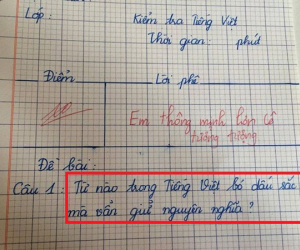 Lớp:
Kiểm tra Tiếng Việt
Thời gian: phút
Điểm
Lời phê
Em thông minh hơn cô
tưởng tượng
Đề bài:
Câu 1: Từ nào trong Tiếng Việt bỏ dấu sắc
mà vẫn giữ nguyên nghĩa?